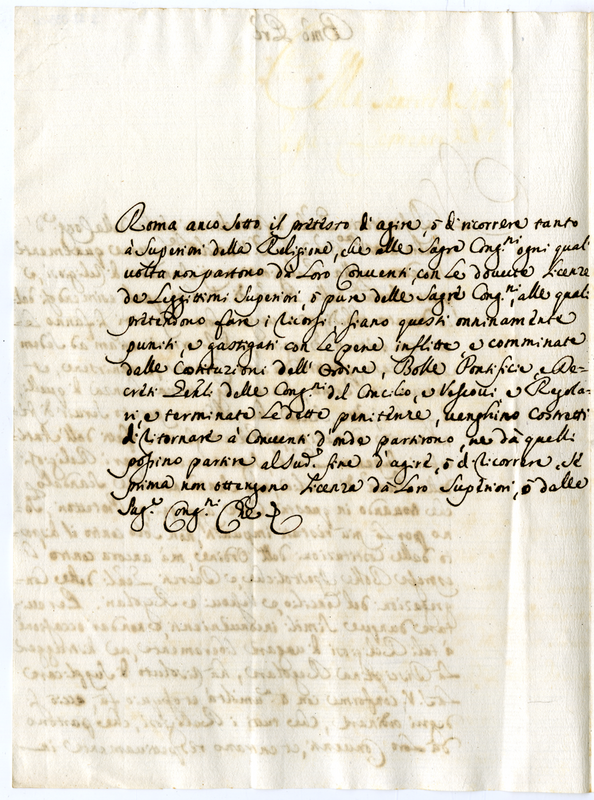 Roma anco sotto il pretesto d'agire, ò di ricorrere tanto
à Superiori della Religione, che alle Sagre Cong.ni ogni qual
volta non partono dà Loro Conventi, con le dovute Licenze
de Leggittimi Superiori, ò pure delle Sagre Cong.ni, alle quali
pretendono fare i ricorsi, siano questi onninamente
puniti, e gastigati con le pene inflitte e comminate
dalle Costituzioni dell' Ordine, Bolle Pontificie, e De-
creti Gnli delle Cong.ni del Concilio, e Vescovi, e Regola-
ri, e terminate le dette penitenze, venghino Costretti
di ritornare à Conventi d'onde partirono, ne dà quelli
possino partire al sud.o fine d'agire, ò di ricorrere, se
prima non ottengono Licenza dà Loro Superiori, ò dalle
Sag.e Cong.ni Che